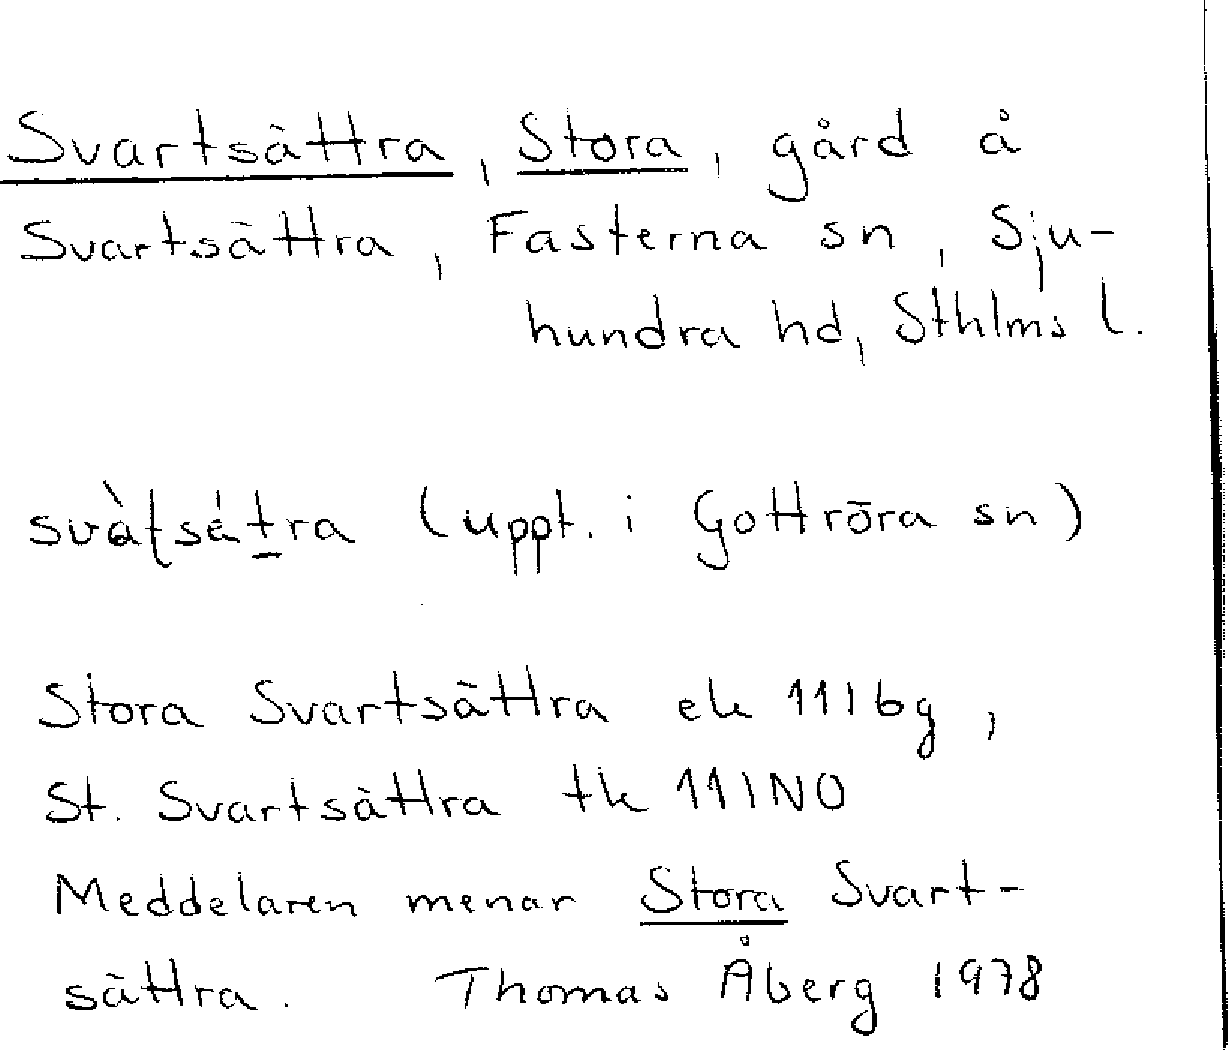 Svartsättra, Stora, gård å
Svartsättra, Fasterna sn, Sju-
hundra hd, Sthlms l.
(uppt. i Gottröra sn)
Stora Svartsättra ek 11I6g,
St. Svartsättra tk 11INO
Meddelaren menar Stora Svart-
sättra. Thomas Åberg 1978